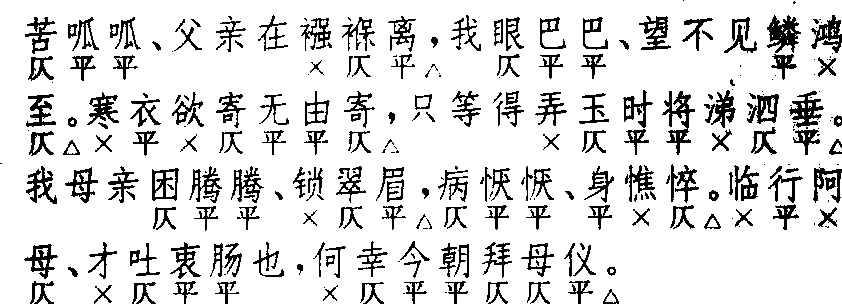 苦呱呱、父亲在襁褓离，我眼巴巴、望不见鳞鸿
仄平平 ×仄平△ 仄平平 平×
至。寒衣欲寄无由寄，只等得弄玉时将涕泗垂。
仄△×平×仄平平仄△ ×仄平平×仄平△
我母亲困腾腾、锁翠眉，病恹恹、身憔悴。临行阿
仄平平×仄平△仄平平 平×仄△×平×
母、才吐衷肠也，何幸今朝拜母仪。
仄 ×仄平平 ×仄平平仄仄平△